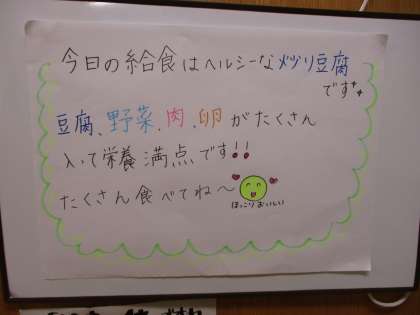 今日の給食はヘルシーな炒り豆腐
です
豆腐、野菜、肉、卵がたくさん
入って栄養満点です!!
たくさん食べてね〜
ほっこりおいしい